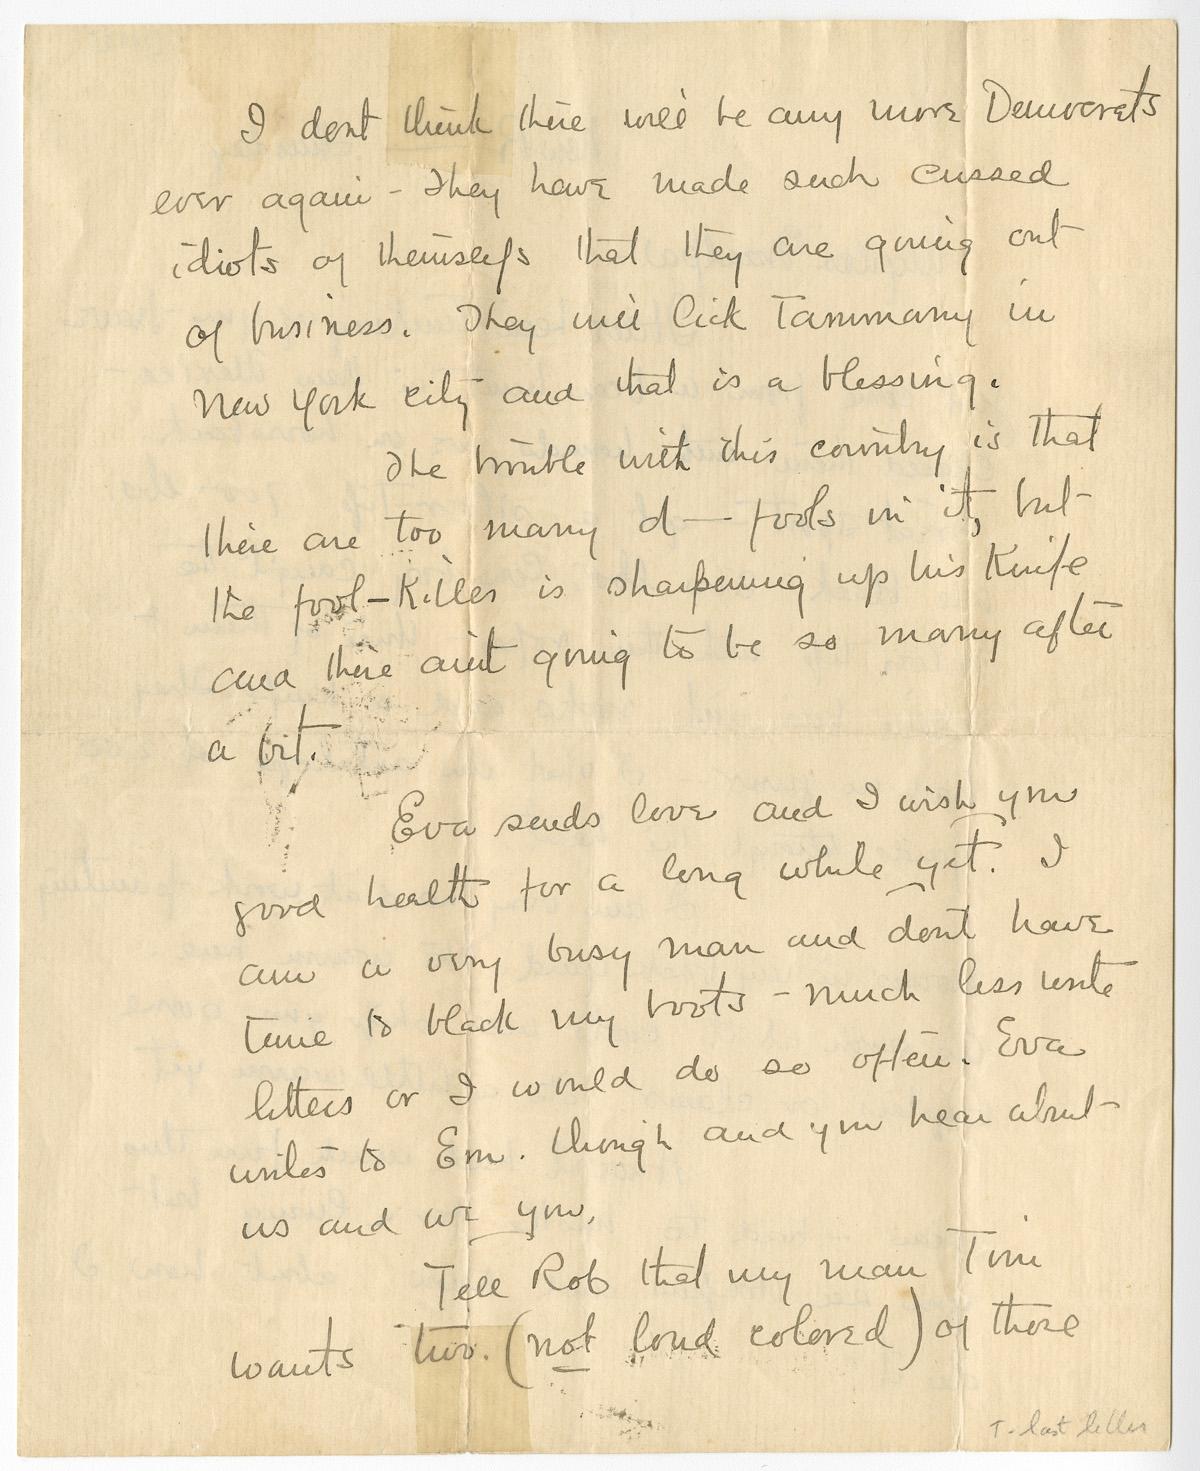 I dont think there will be any more Democrats
ever again - They have made such cussed
idiots of themselfs that they are going out
of business. They will lick Tammany in
New York city and that is a blessing.
The trouble with this country is that
there are too many d— fools in it, but
the fool-Killer is sharpening up his Knife
and there aint going to be so many after
a bit.
Eva sends love and I wish you
good health for a long while yet. I
am a very busy man and dont have
time to black my boots - much less write
letters or I would do so often. Eva
writes to Em. though and you hear about
us and we you.
Tell Rob that my man Tim
wants two. (not loud colored) of those
T- last letter